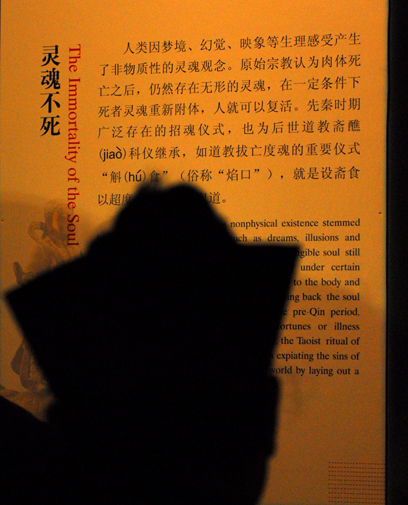 灵魂不死
The Immortality of the Soul
人类因梦境、幻觉、映象等生理感受产生
了非物质性的灵魂观念。原始宗教认为肉体死
亡之后，仍然存在无形的灵魂，在一定条件下
死者灵魂重新附体，人就可以复活。先秦时期
广泛存在的招魂仪式，也为后世道教斋醮
(jiào)科仪继承，如道教拔亡度魂的重要仪式
“斛(hú)食”（俗称“焰口”），就是设斋食
以超 道。
nonphysical existence stemmed
as dreams, illusions and
soul still
under certain
to the body and
back the soul
pre-Qin period.
or illness
the Taoist ritual of
expiating the sins of
by laying out a